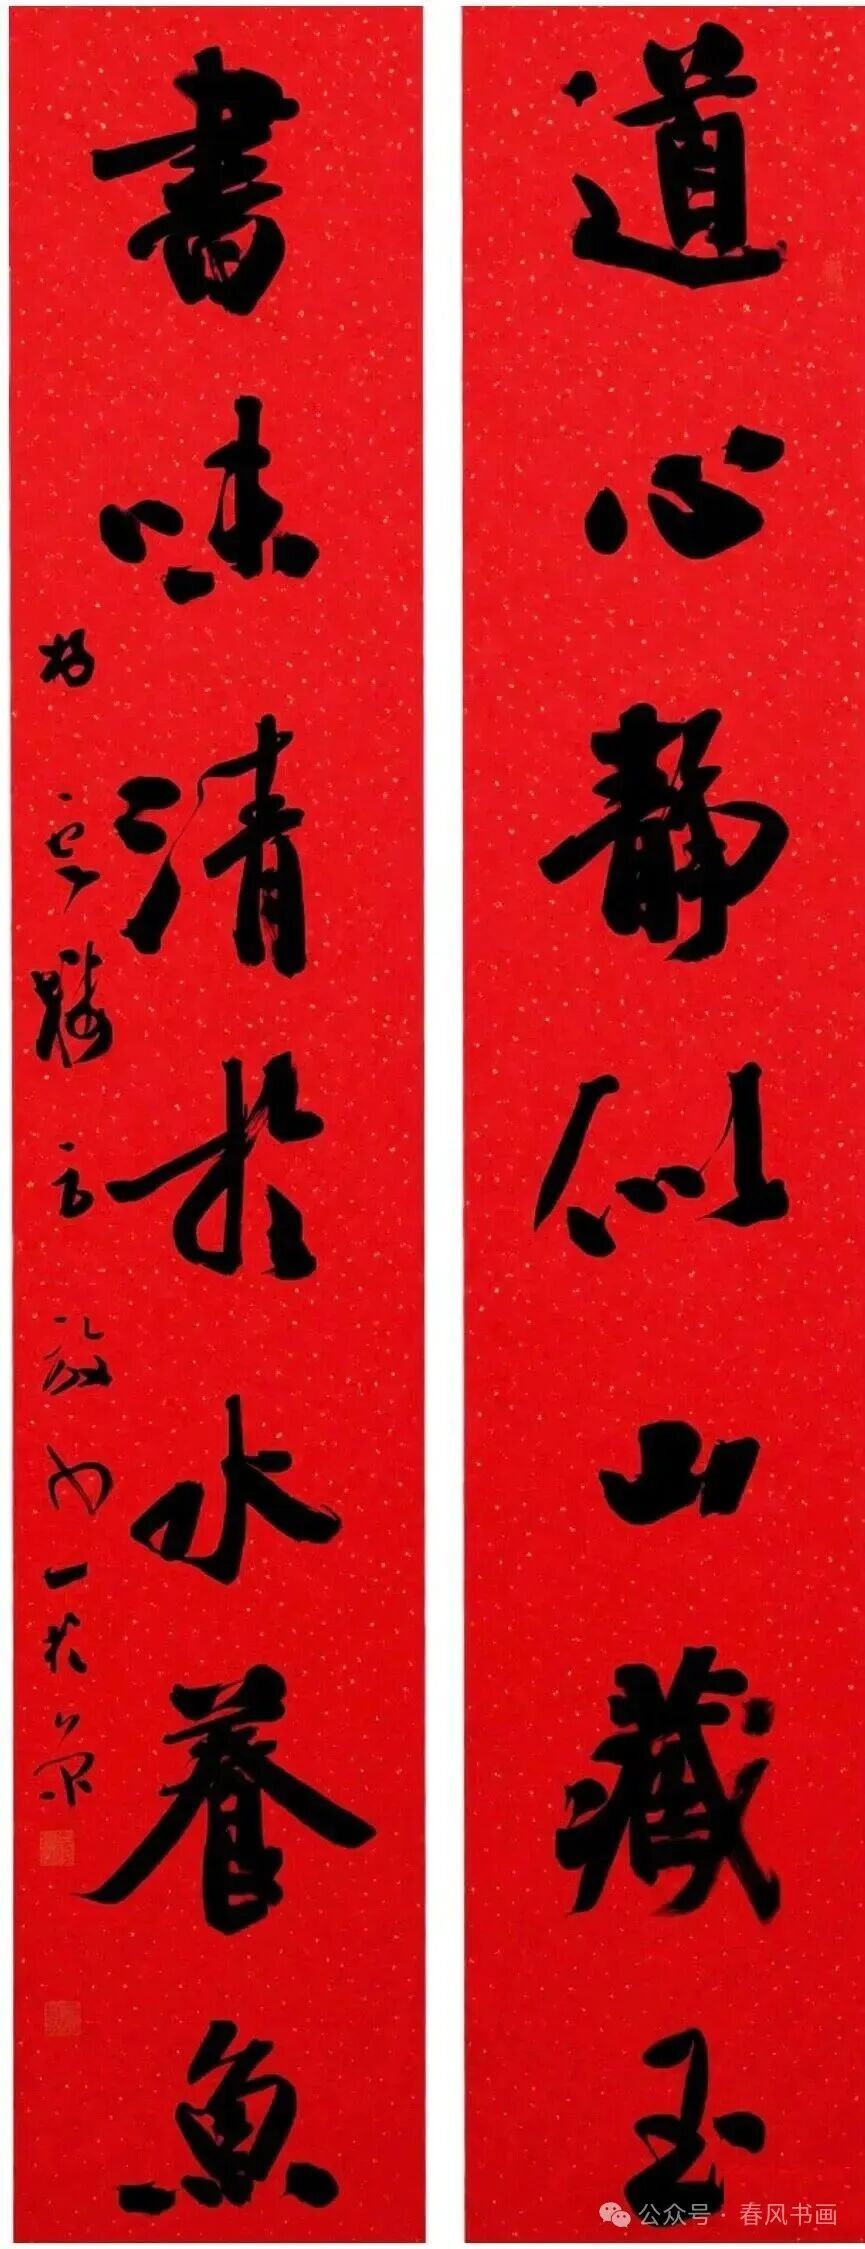 道心静似山藏玉
書味清於水養魚
公众号·春风书画